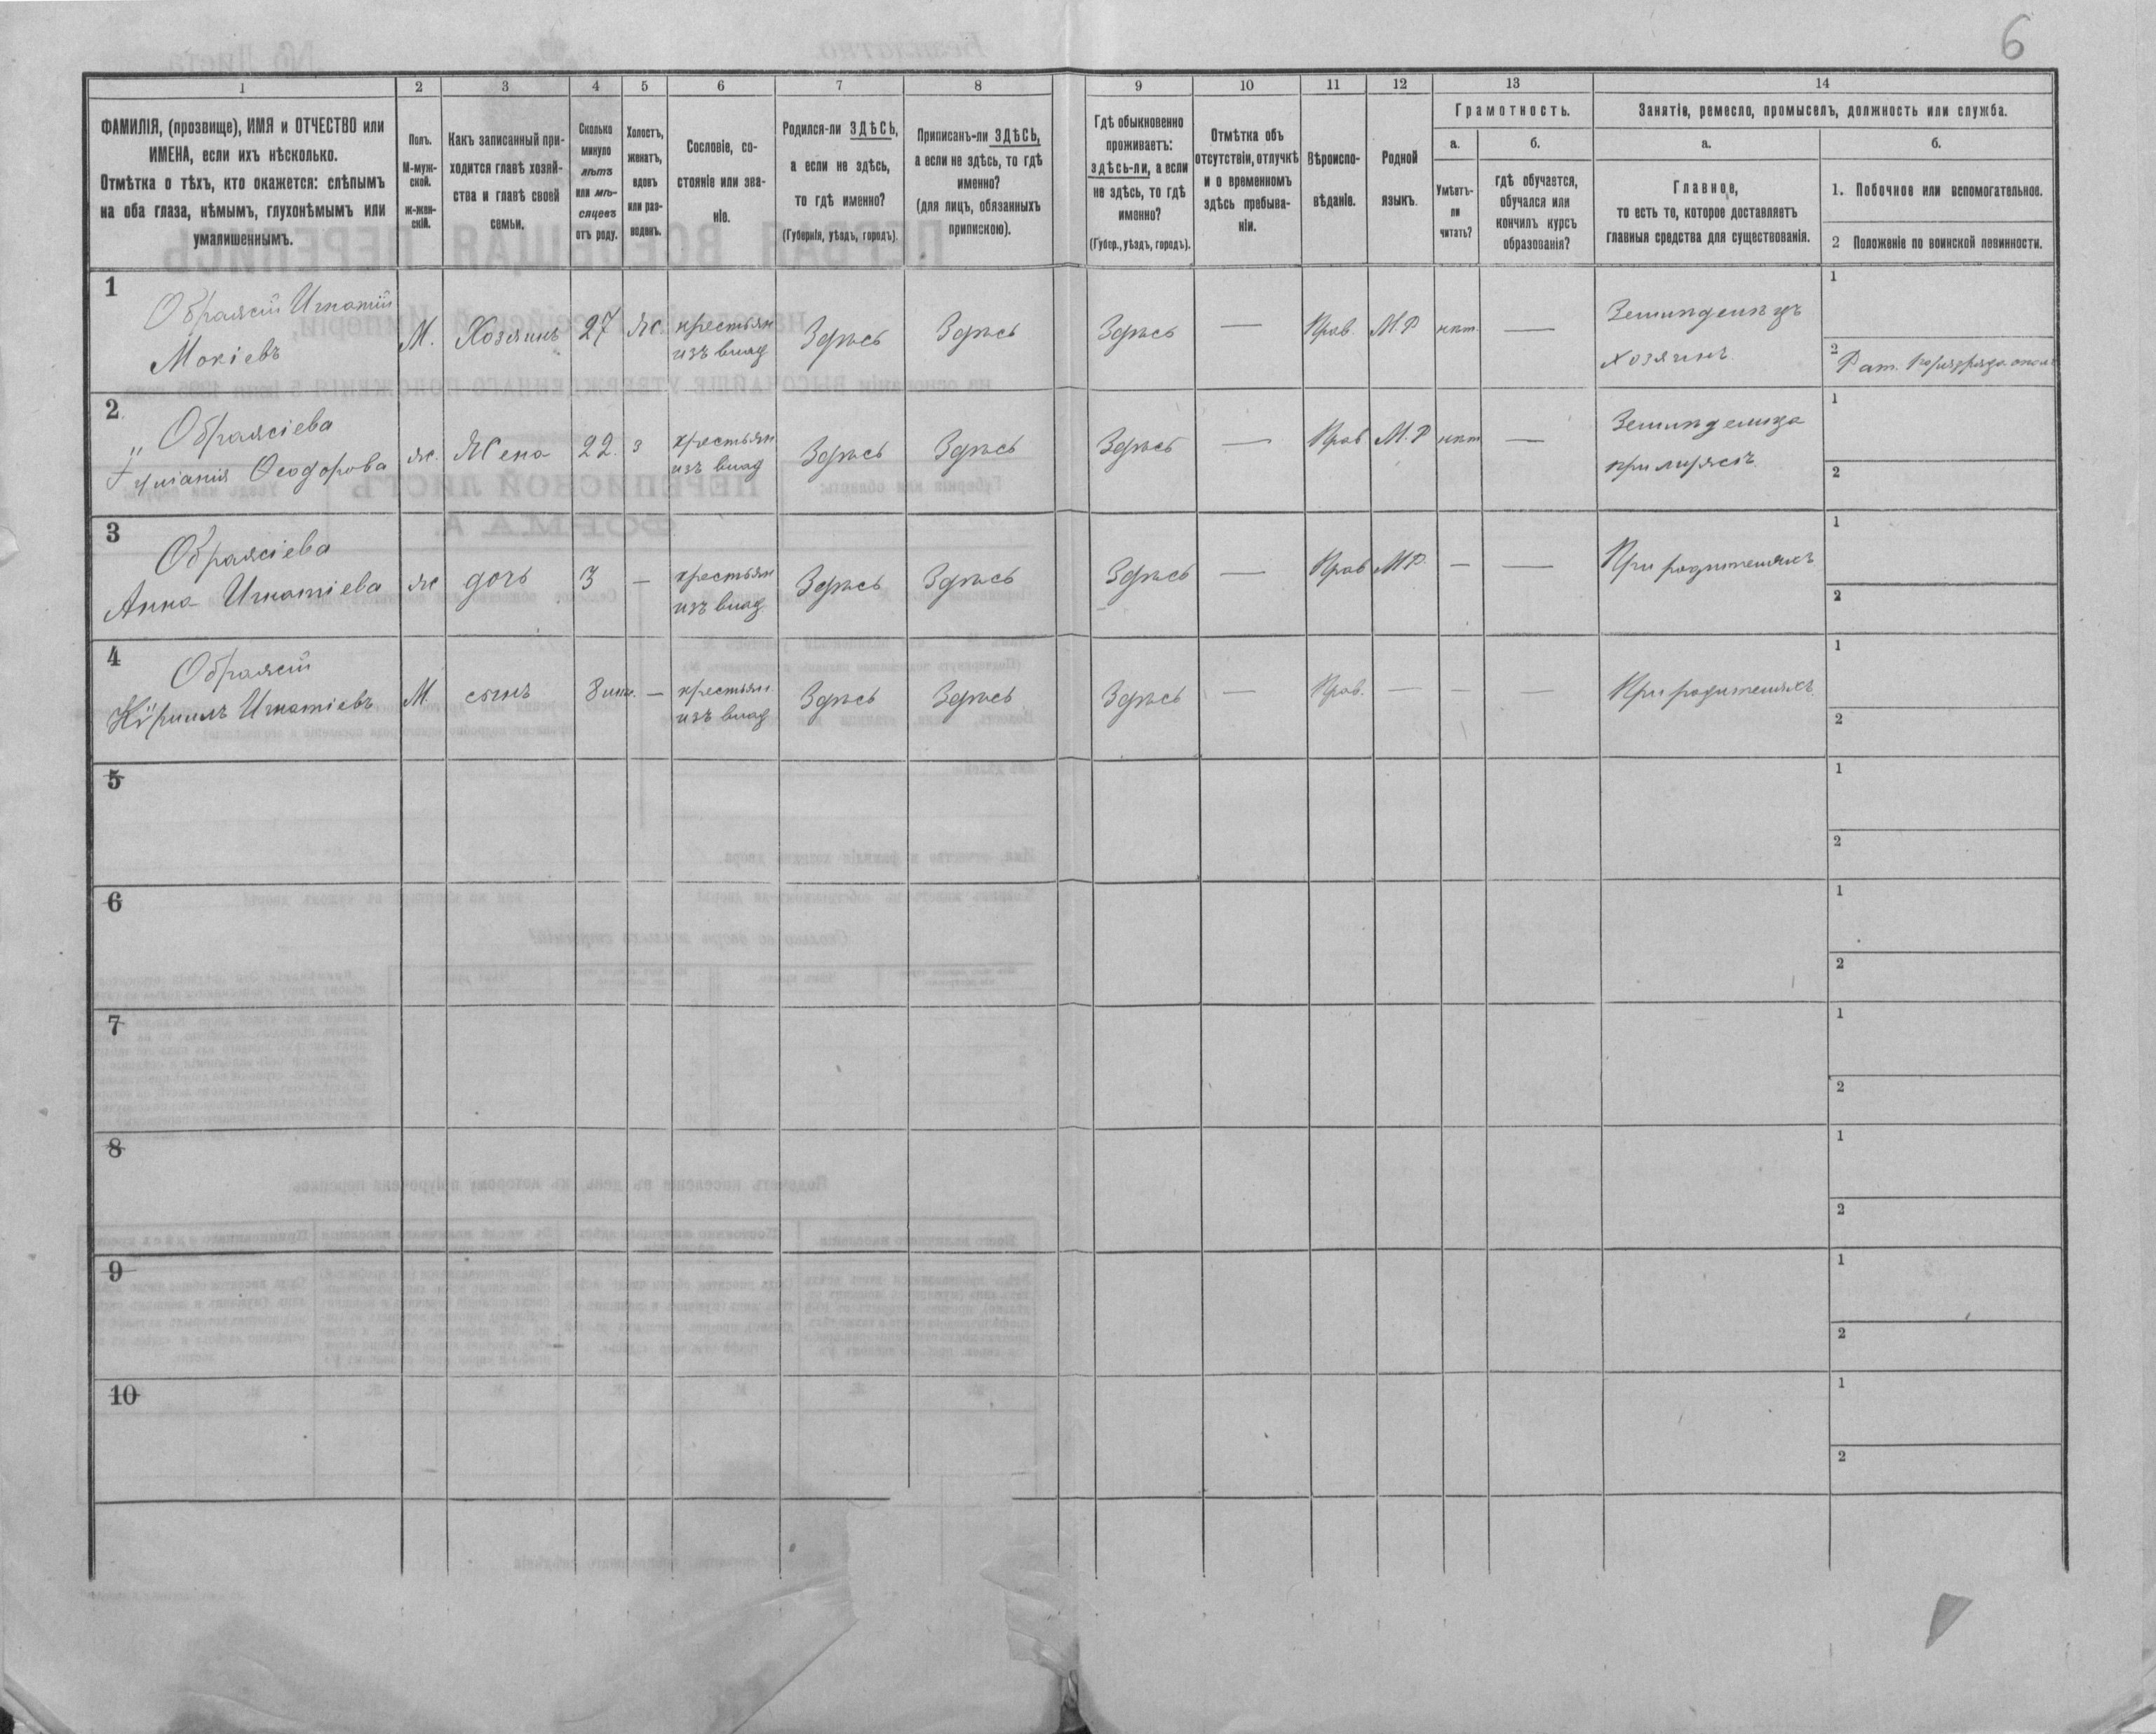 6
1 2 3 4 5 6 7 8 9 10 11 12 13 14
ФАМИЛІЯ, (прозвище), ИМЯ и ОТЧЕСТВО или
ИМЕНА, если ихъ нѣсколько.
Отмѣтка о тѣхъ, кто окажется: слѣпымъ
на оба глаза, нѣмымъ, глухонѣмымъ или
умалишеннымъ.
Полъ.
М-муж-
ской.
ж-жен-
скій.
Какъ записанный при-
ходится главѣ хозяй-
ства и главѣ своей
семьи.
Сколько
минуло
лѣтъ
или мѣ-
сяцевъ
отъ роду.
Холостъ,
женатъ,
вдовъ
или раз-
веденъ.
Сословіе, со-
стояніе или зва-
ніе.
Родился-ли ЗДѢСЬ,
а если не здѣсь,
то гдѣ именно?
(Губернія, уѣздъ, городъ).
Приписанъ-ли ЗДѢСЬ,
а если не здѣсь, то гдѣ
именно?
(для лицъ, обязанныхъ
припискою).
Гдѣ обыкновенно
проживаетъ:
здѣсь-ли, а если
не здѣсь, то гдѣ
именно?
(Губер., уѣздъ, городъ).
Отмѣтка объ
отсутствіи, отлучкѣ
и о временномъ
здѣсь пребыва-
ніи.
Вѣроиспо-
вѣданіе.
Родной
языкъ.
Грамотность.
а.
Умѣетъ-
ли
читать?
б.
гдѣ обучается,
обучался или
кончилъ курсъ
образованія?
Занятія, ремесло, промыселъ, должность или служба.
а.
Главное,
то есть то, которое доставляетъ
главныя средства для существованія.
б.
1. Побочное или вспомогательное.
2 Положеніе по воинской повинности.
1
Ображій Игнатій
Мокіевъ
М. Хозяинъ 27 Ж. крестьян
изъ влад
Здѣсь Здѣсь Здѣсь — Прав. М.Р нѣт. —
Земледѣлецъ
хозяинъ
1
2 Рат.
2
Ображіева
Ѳеодорова
ж. Жена 22. З крестьян
изъ влад
Здѣсь Здѣсь Здѣсь — Прав М.Р нѣт —
Земледелица
при мужѣ
1
2
3
Ображіева
Анна Игнатіева
ж дочь 3 — крестьян
изъ влад
Здѣсь Здѣсь Здѣсь — Прав МР. — —
При родителяхъ
1
2
4
Ображій
Кѷрилъ Игнатіевъ
М сынъ 8 — крестьян.
изъ влад
Здѣсь Здѣсь Здѣсь — Прав. — — —
При родителяхъ
1
2
5
1
2
6
1
2
7
1
2
8
1
2
9
1
2
10
1
2